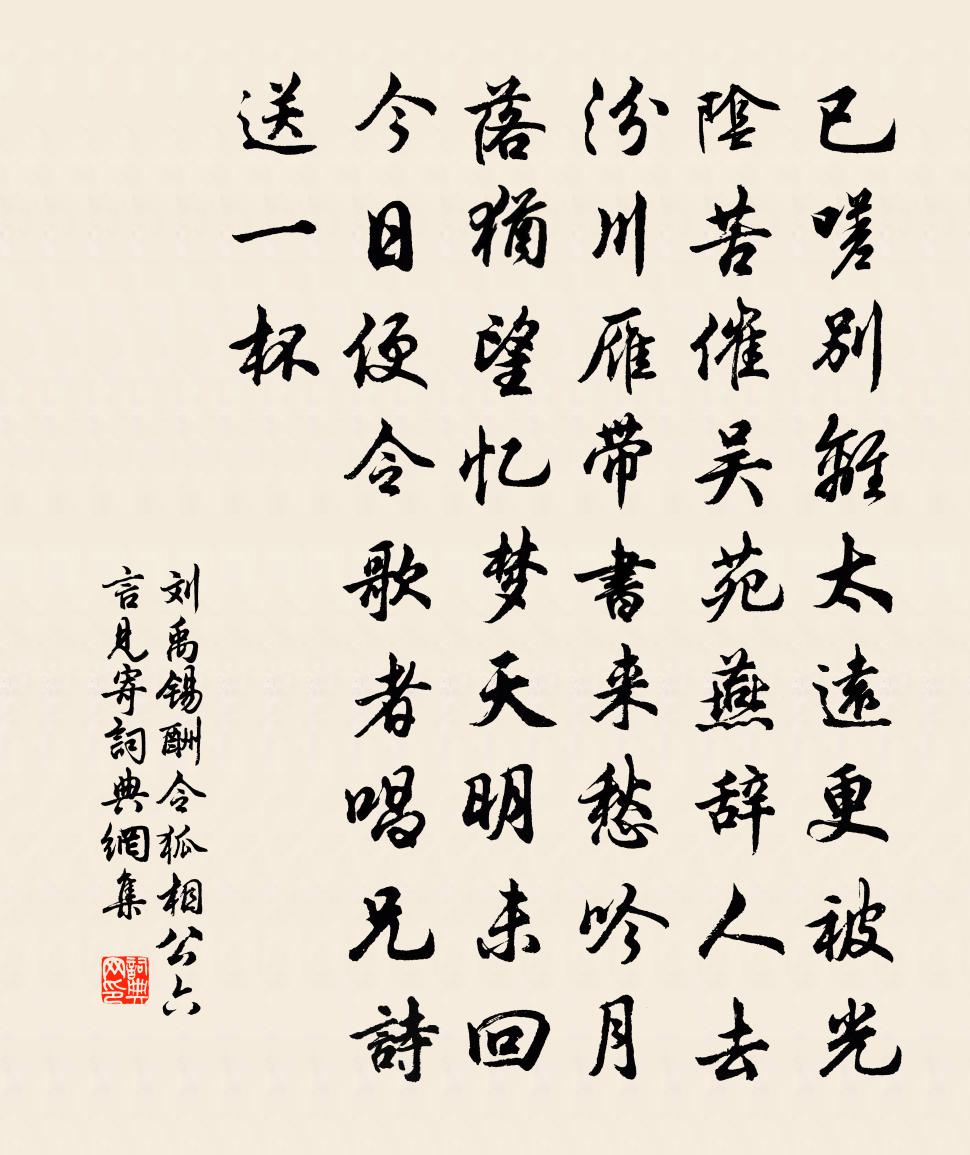 已嗟別離太遠更被光
陰苦催吴苑燕辞人去
汾川雁带書来愁吟月
落猶望忆梦天明未回
今日便令歌者唱兄詩
送一杯
刘禹锡酬令狐相公六
言见寄詞典網集
詞典网印